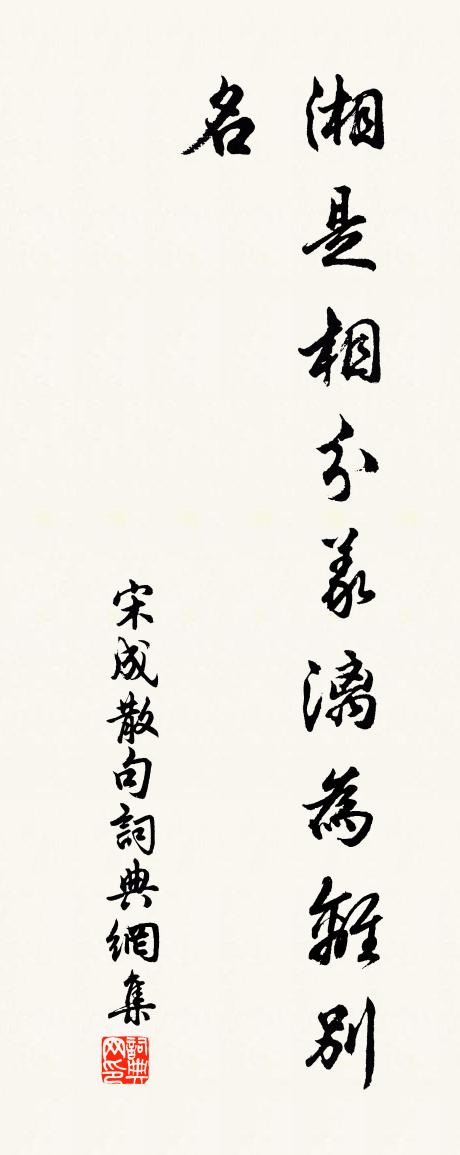 湘是相分義漓為離別
名
宋成散句詞典網集
詞典网印